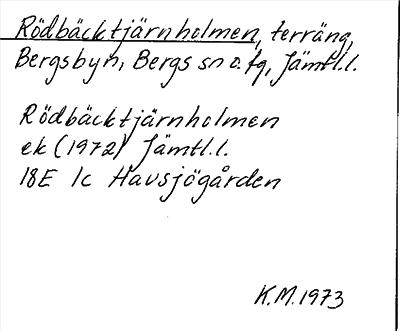 Rödbäcktjärnholmen, terräng,
Bergsbyn, Bergs sn o. fg, Jämtl.l.
Rödbäcktjärnholmen
ek (1972) Jämtl.l.
18E 1c Havsjögården
K.M. 1973